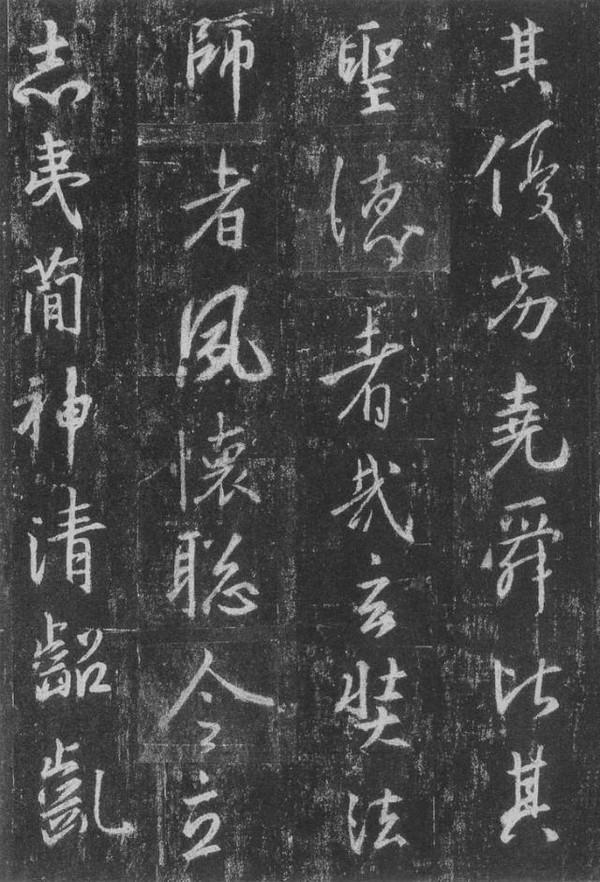 其優劣堯舜比其
聖德者哉玄奘法
師者夙懷聰令立
志夷簡神清齠齓